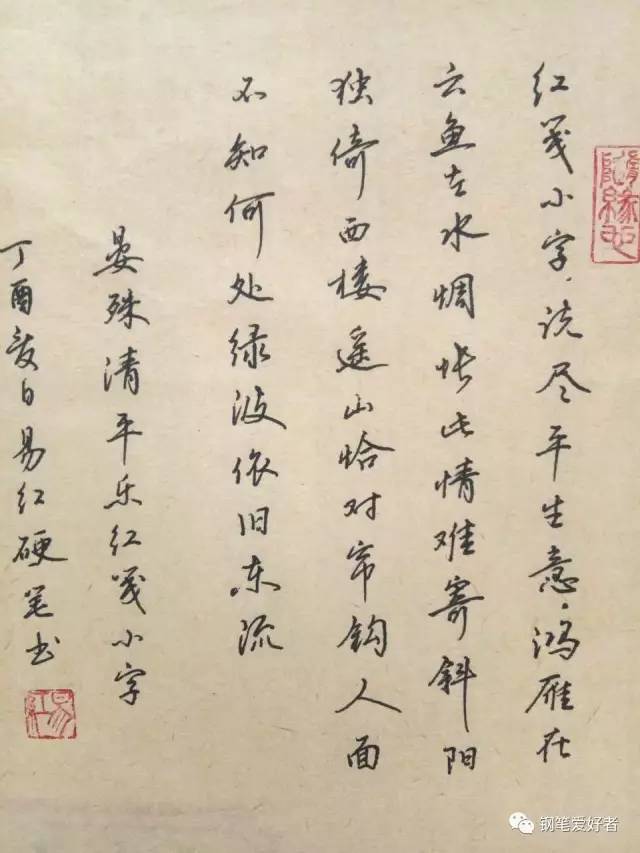 红笺小字,说尽平生意,鸿雁在
云鱼在水惆怅此情难寄斜阳
独倚西楼遥山恰对帘钩人面
不知何处绿波依旧东流
晏殊清平乐红笺小字
丁酉夏日易红硬笔书
随缘也
易红
钢笔爱好者